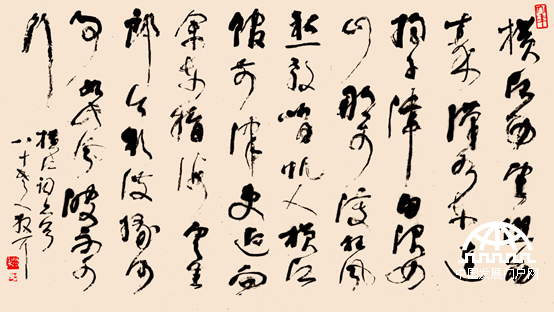 横江西望阻西
秦汉水东连
扬子津白浪如
山那可渡狂风
愁杀峭帆人横江
馆前津吏迎向
余东指海云生
郎今欲渡缘何
事如此风波不可
行
横江词
八十
中国发展门户网